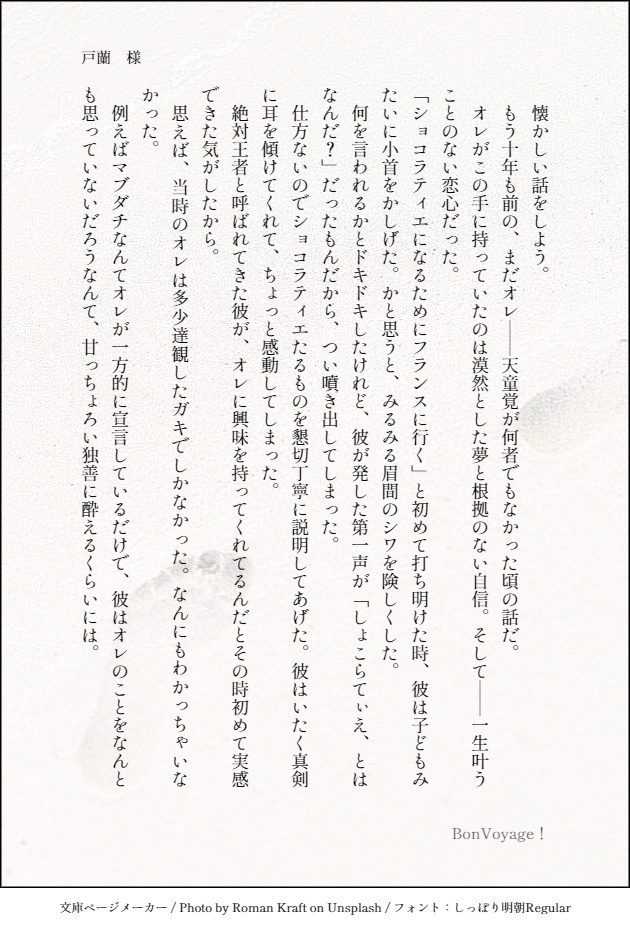 戸蘭　様
懐かしい話をしよう。
もう十年も前の、まだオレ――天童覚が何者でもなかった頃の話だ。
オレがこの手に持っていたのは漠然とした夢と根拠のない自信。そして――一生叶う
ことのない恋心だった。
「ショコラティエになるためにフランスに行く」と初めて打ち明けた時、彼は子どもみ
たいに小首をかしげた。かと思うと、みるみる眉間のシワを険しくした。
何を言われるかとドキドキしたけれど、彼が発した第一声が「しょこらてぃえ、とは
なんだ？」だったもんだから、つい噴き出してしまった。
仕方ないのでショコラティエたるものを懇切丁寧に説明してあげた。彼はいたく真剣
に耳を傾けてくれて、ちょっと感動してしまった。
絶対王者と呼ばれてきた彼が、オレに興味を持ってくれてるんだとその時初めて実感
できた気がしたから。
思えば、当時のオレは多少達観したガキでしかなかった。なんにもわかっちゃいな
かった。
例えばマブダチなんてオレが一方的に宣言しているだけで、彼はオレのことをなんと
も思っていないだろうなんて、甘っちょろい独善に酔えるくらいには。
BonVoyage！
文庫ページメーカー / Photo by Roman Kraft on Unsplash / フォント：しっぽり明朝Regular